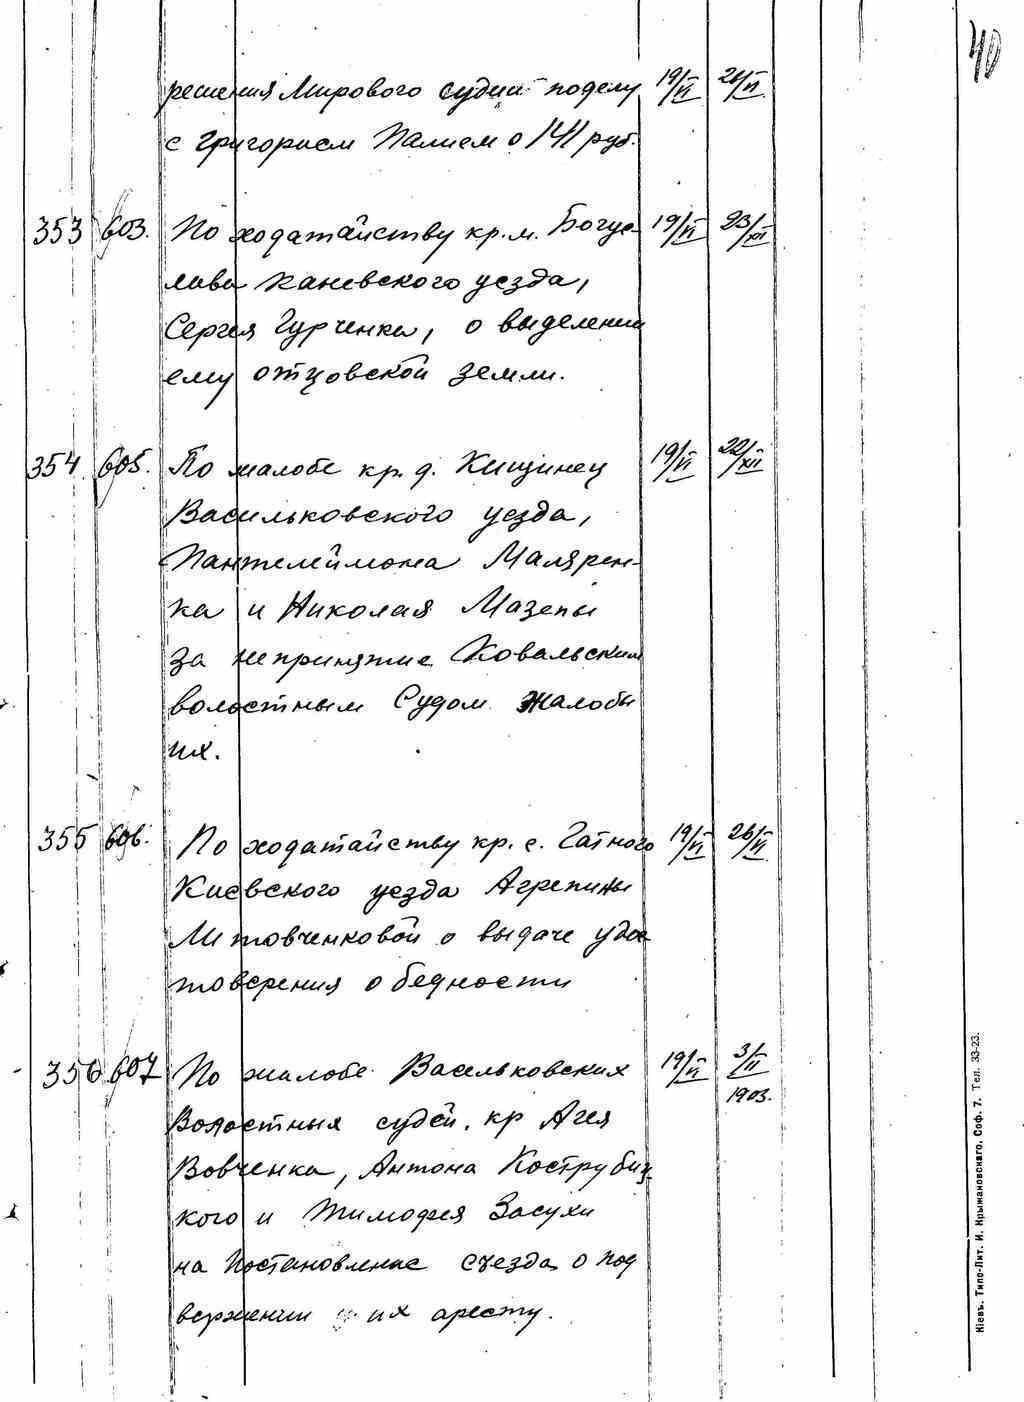 40
решения Мирового судьи по делу 19/VI 24/VI
с Григорием Палием о 141 руб.
353 603. По ходатайству кр. м. Богус- 19/VI 23/XI
лава Каневского уезда,
Сергея Гурченка, о выделении
ему отцовской земли.
354 605. По жалобе кр. д. Кищинец 19/VI 22/XII
Васильковского уезда,
Пантелеймона Малярен-
ка и Николая Мазепы
за непринятие Ковальским
волостным Судом жалобы
их.
355 606. По ходатайству кр. с. Гатного 19/VI 26/VI
Киевского уезда Агрепины
Литовченковой о выдаче удос
товерения о бедности
356 607 По жалобе Васильковских 19/VI 3/II
1903.
Волостных судей, кр Агея
Вовченка, Антона Кострубиц-
кого и Тимофея Засухи
на Постановление съезда о под
вержении их аресту.
Кіевъ. Типо-Лит. И. Крыжановскаго, Соф. 7. Тел. 33-23.